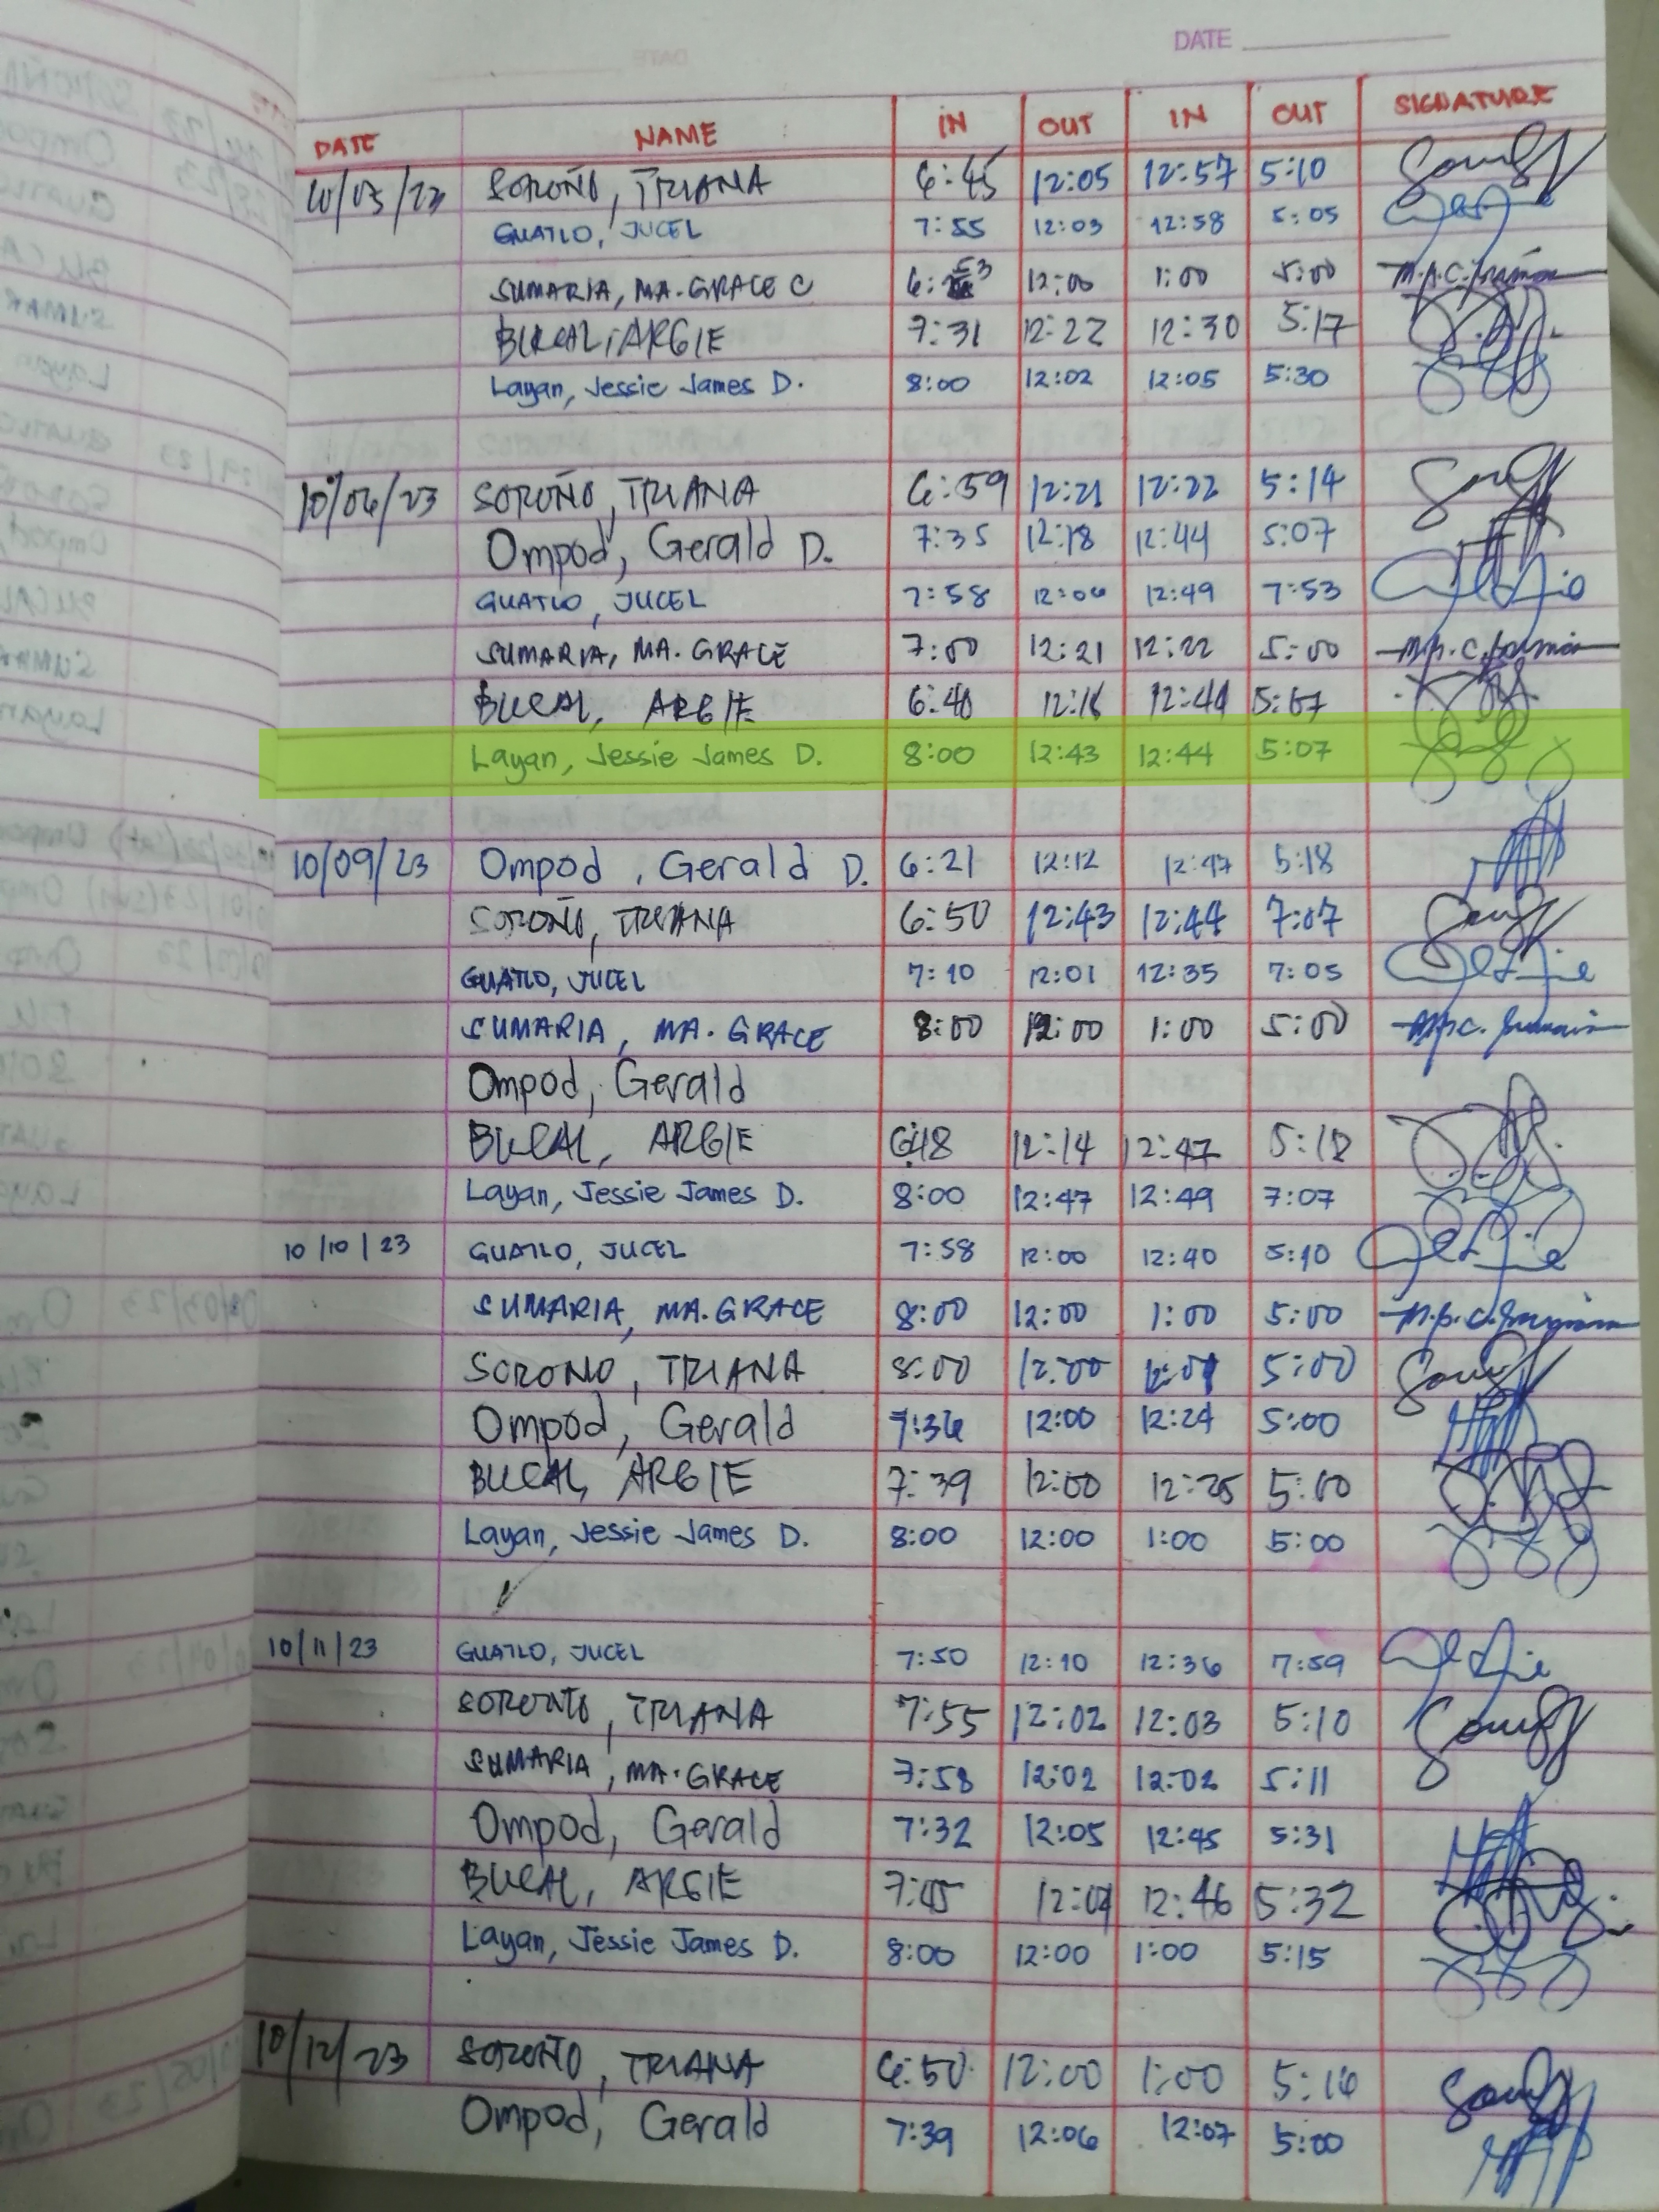 DATE
DATE NAME IN OUT IN OUT SIGNATURE
10/03/23 SOROÑO, TRIANA 6:45 12:05 12:57 5:10
GUATLO, JUCEL 7:55 12:03 12:58 5:05
SUMARIA, MA. GRACE C 6:53 12:00 1:00 5:00
BUCAL, ARGIE 7:31 12:22 12:30 5:17
Layan, Jessie James D. 8:00 12:02 12:05 5:30
10/06/23 SOROÑO, TRIANA 6:59 12:21 12:22 5:14
Ompod, Gerald D. 7:35 12:18 12:44 5:07
GUATLO, JUCEL 7:58 12:06 12:49 7:53
SUMARIA, MA. GRACE 7:00 12:21 12:22 5:00
BUCAL, ARGIE 6:40 12:16 12:44 5:07
Layan, Jessie James D. 8:00 12:43 12:44 5:07
10/09/23 Ompod, Gerald D. 6:21 12:12 12:47 5:18
SOROÑO, TRIANA 6:50 12:43 12:44 7:07
GUATLO, JUCEL 7:10 12:01 12:35 7:05
SUMARIA, MA. GRACE 8:00 12:00 1:00 5:00
Ompod, Gerald
BUCAL, ARGIE 6:18 12:14 12:47 5:18
Layan, Jessie James D. 8:00 12:47 12:49 7:07
10/10/23 GUATLO, JUCEL 7:58 12:00 12:40 5:10
SUMARIA, MA. GRACE 8:00 12:00 1:00 5:00
SOROÑO, TRIANA 8:00 12:00 12:01 5:00
Ompod, Gerald 7:36 12:00 12:24 5:00
BUCAL, ARGIE 7:39 12:00 12:25 5:00
Layan, Jessie James D. 8:00 12:00 1:00 5:00
10/11/23 GUATLO, JUCEL 7:50 12:10 12:36 7:59
SOROÑO, TRIANA 7:55 12:02 12:03 5:10
SUMARIA, MA. GRACE 7:58 12:02 12:02 5:11
Ompod, Gerald 7:32 12:05 12:45 5:31
BUCAL, ARGIE 7:45 12:04 12:46 5:32
Layan, Jessie James D. 8:00 12:00 1:00 5:15
10/12/23 SOROÑO, TRIANA 6:50 12:00 1:00 5:16
Ompod, Gerald 7:39 12:06 12:07 5:00